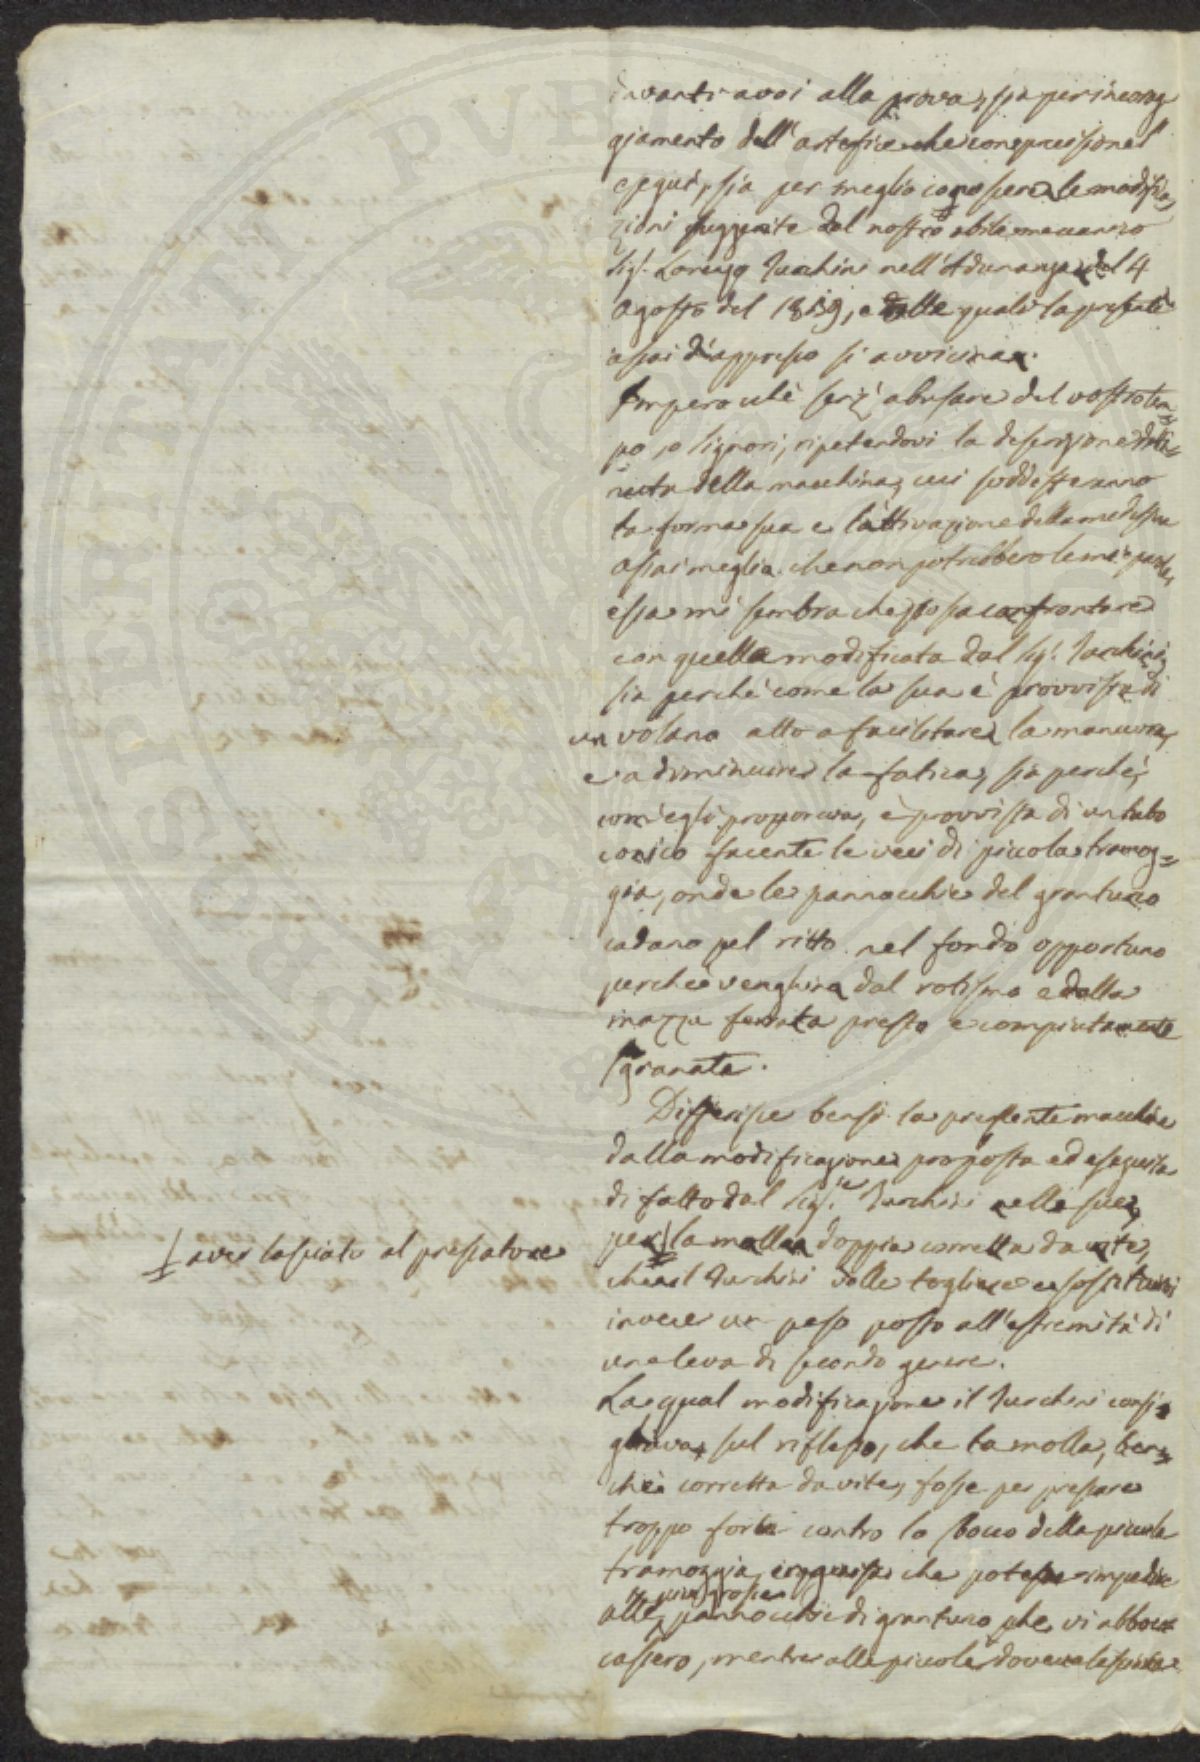 davanti a voi alla prova, sia per incorag
giamento dell'artefice che con precisione l'
eseguì, sia per meglio conoscere le modifica
zioni suggerite dal nostro abile meccanico
Sig.r Lorenzo Turchini nell'Adunanza del 4
Agosto del 1839, e dalle quali la presente
assai d'appresso si avvicina.
Imperocchè senz'abusare del vostro tem=
po, o Signori, ripetendovi la descrizione
della macchina, cui soddisferanno
la forma sua e l'attivazione della medesima
assai meglio che non potrebbero le mie parole,
essa mi sembra che possa confrontare
con quella modificata dal Sig.r Turchini,
sia perchè come la sua è provvista di
un volano atto a facilitare la manovra,
e a diminuire la fatica, sia perchè,
com'egli proponeva, è provvista di un tubo
conico facente le veci di piccola tramog=
gia, onde le pannocchie del granturco
cadano pel ritto nel fondo opportuno
perchè venghino dal rotismo e dalla
mazza ferrata presto e compiutamente
sgranate.
Differisce bensì la presente macchina
dalla modificazione proposta ed eseguita
di fatto dal Sig.r Turchini nelle sue,
per la molla doppia corretta da vite,
che il Turchini volle togliere e sostituirvi
invece un peso posto all'estremità di
una leva di secondo genere.
La qual modificazione il Turchini consi=
gliava sul riflesso, che la molla, ben=
chè corretta da vite, fosse per pressare
troppo forte contro lo sbocco della piccola
tramoggia, cosicchè potesse impedire
più grosse
alle pannocchie di granturco che vi abboc
cassero, mentre alle piccole dovea lasciare
aver lasciato al pressatore